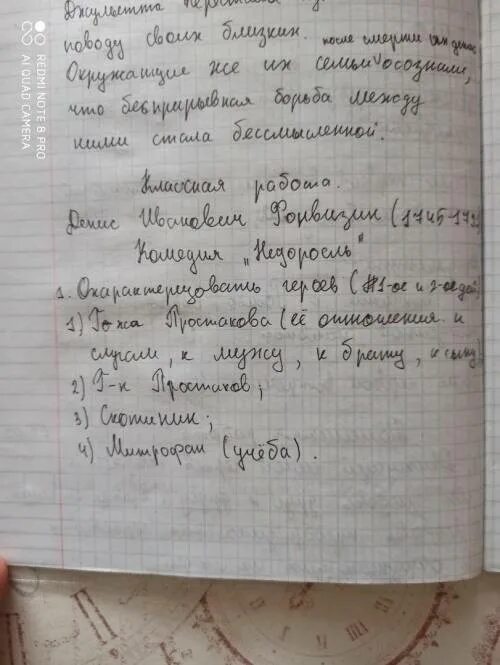 Джульетта перестали
поводу своих близких. после смерти их детей
Окружащие же их семьи осознали,
что беспрырывная борьба между
ними стала бессмысленной.
Классная работа.
Денис Иванович Фонвизин (1745-179
Комедия „Недоросль"
1. Охарактерезовать героев (1-ое и 2-ое дей
1) Г-жа Простакова (её отношения к
слугам, к мужу, к брату, к сыну)
2) Г-н Простаков;
3) Скотинин;
4) Митрофан (учёба).
REDMI NOTE 8 PRO
AI QUAD CAMERA